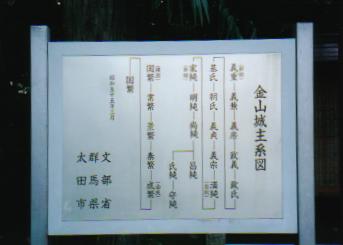 金山城主系図
義重―義兼―義房―政義―政氏
基氏―朝氏―義貞―義宗―満純
家純―明純―尚純―昌純
氏純―守純
国繁―業繁―泰繁―成繁
国繁
昭和五十五年三月
文部省
群馬県
太田市